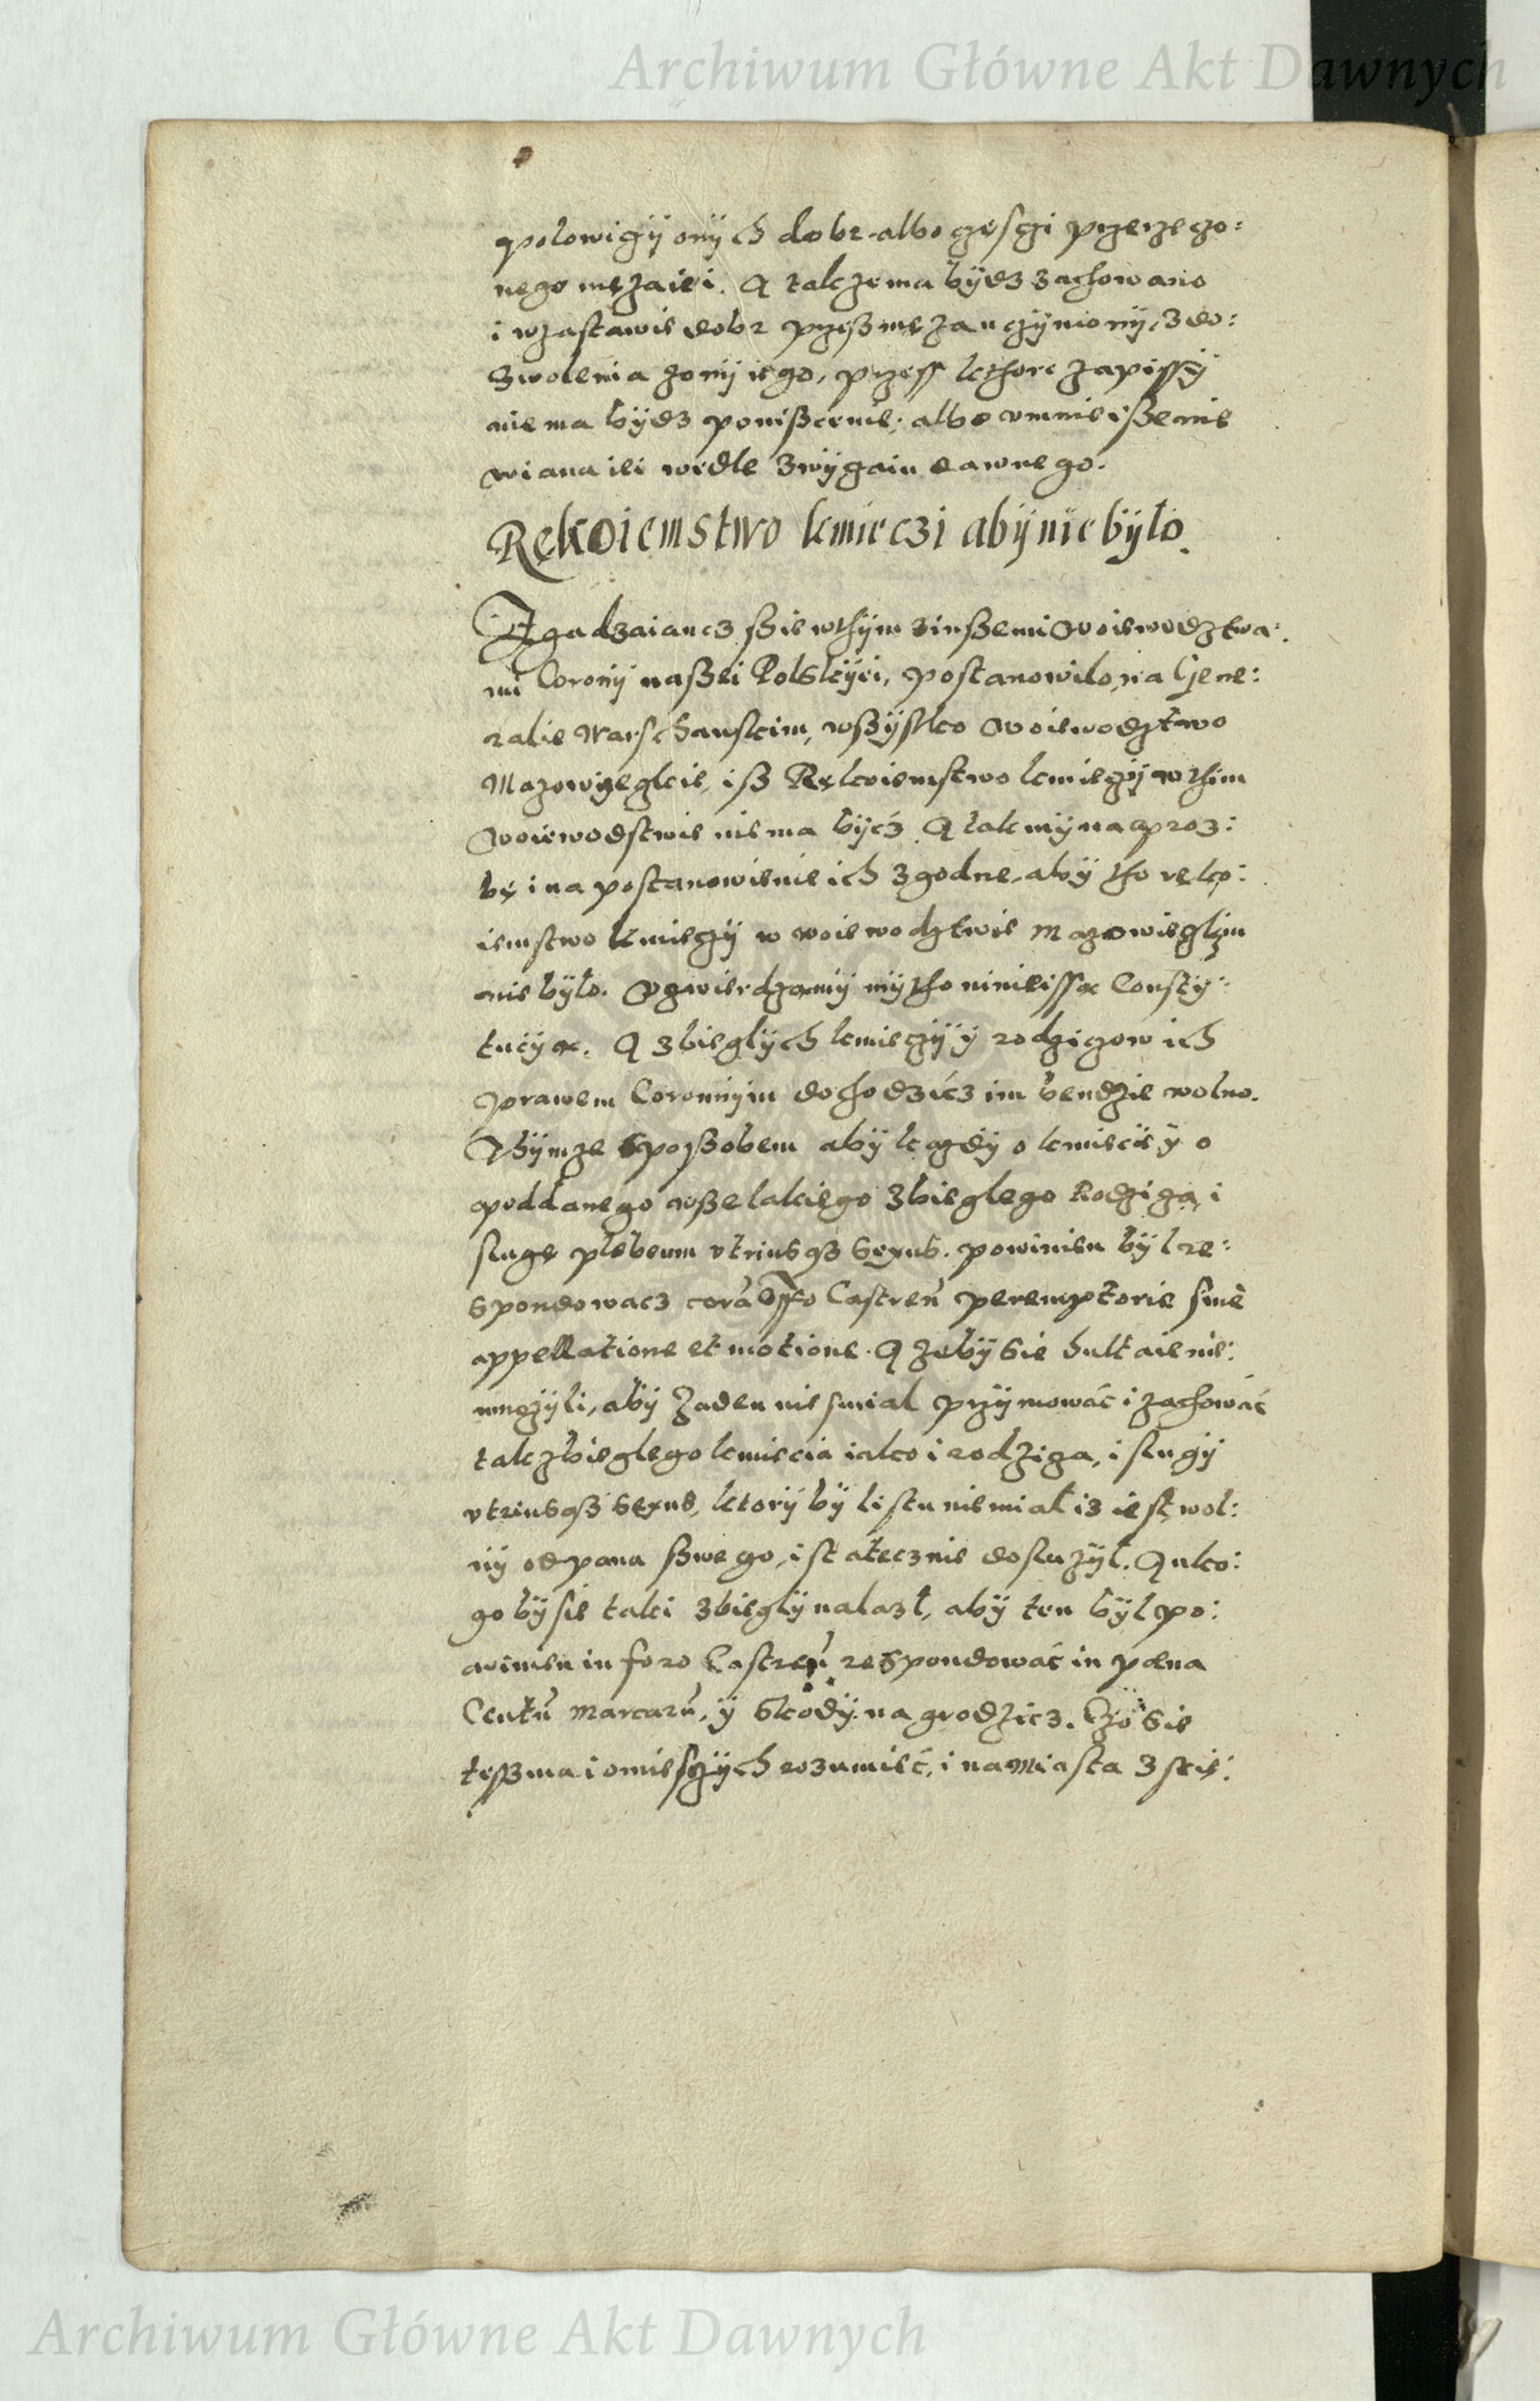 Archiwum Główne Akt Dawnych
polowiczÿ onÿch dobr albo czesczi przerzeczo:
nego męza iei. A takze ma bÿdz zachowano
i wzastawie dobr przesz męza uczÿnionÿ, z do:
zwolenia zonÿ iego, przess kthore zapissÿ
nie ma bÿdz ponisczenie, albo vmnieiszenie
wiana iei wedle zwÿczaiu dawnego.
Rękoiemstwo kmieczi abÿ nie bÿło.
Zgadzaiancz szie wthÿm z inszemi Woiewodztwa:
mi Coronÿ naszei Polskÿei, postanowilo na Gene:
ralie Warschauskim, wszÿstko Woiewodztwo
Mazowieczkie, isz Rękoiemstwo kmieczÿ w thim
Woiewodstwie nie ma bÿcz. A tak mÿ na proz:
bę i na postanowienie ich zgodne, abÿ tho ręko:
iemstwo kmieczÿ w woiewodztwie Mazowieczkim
nie bÿło. Vtwierdzamÿ mÿ tho ninieissą Constÿ:
tucÿą. A zbieglÿch kmieczÿ ÿ rodziczow ich
prawem Coronnÿm dochodzicz im bendzie wolno.
Thÿmze sposzobem abÿ kazdÿ o kmiecie ÿ o
poddanego wszelakiego zbieglego Rodzica, i
slugę plebeum vtriusqз sexus. powinien bÿl re:
spondowacz corã Offo Castreñ peremptorie sine
appellatione et motione. A zebÿ sie hultaie nie:
mnozÿli, abÿ zaden nie smial przÿmować i zachować
tak zbieglego kmiecia iako i rodzica, i slugÿ
vtriusqз sexus, ktorÿ bÿ listu nie mial iz iest wol:
nÿ od pana szwego, i statecznie dosluzÿl. A u ko:
go bÿ sie taki zbieglÿ nalazl, abÿ ten bÿl po:
winien in foro Castreñ respondować in pœna
Centũ marcarũ, ÿ skodÿ nagrodzicz. Czo sie
tesz ma i o mieſczÿch rozumieć, i na Miasta zscie:
Archiwum Główne Akt Dawnych